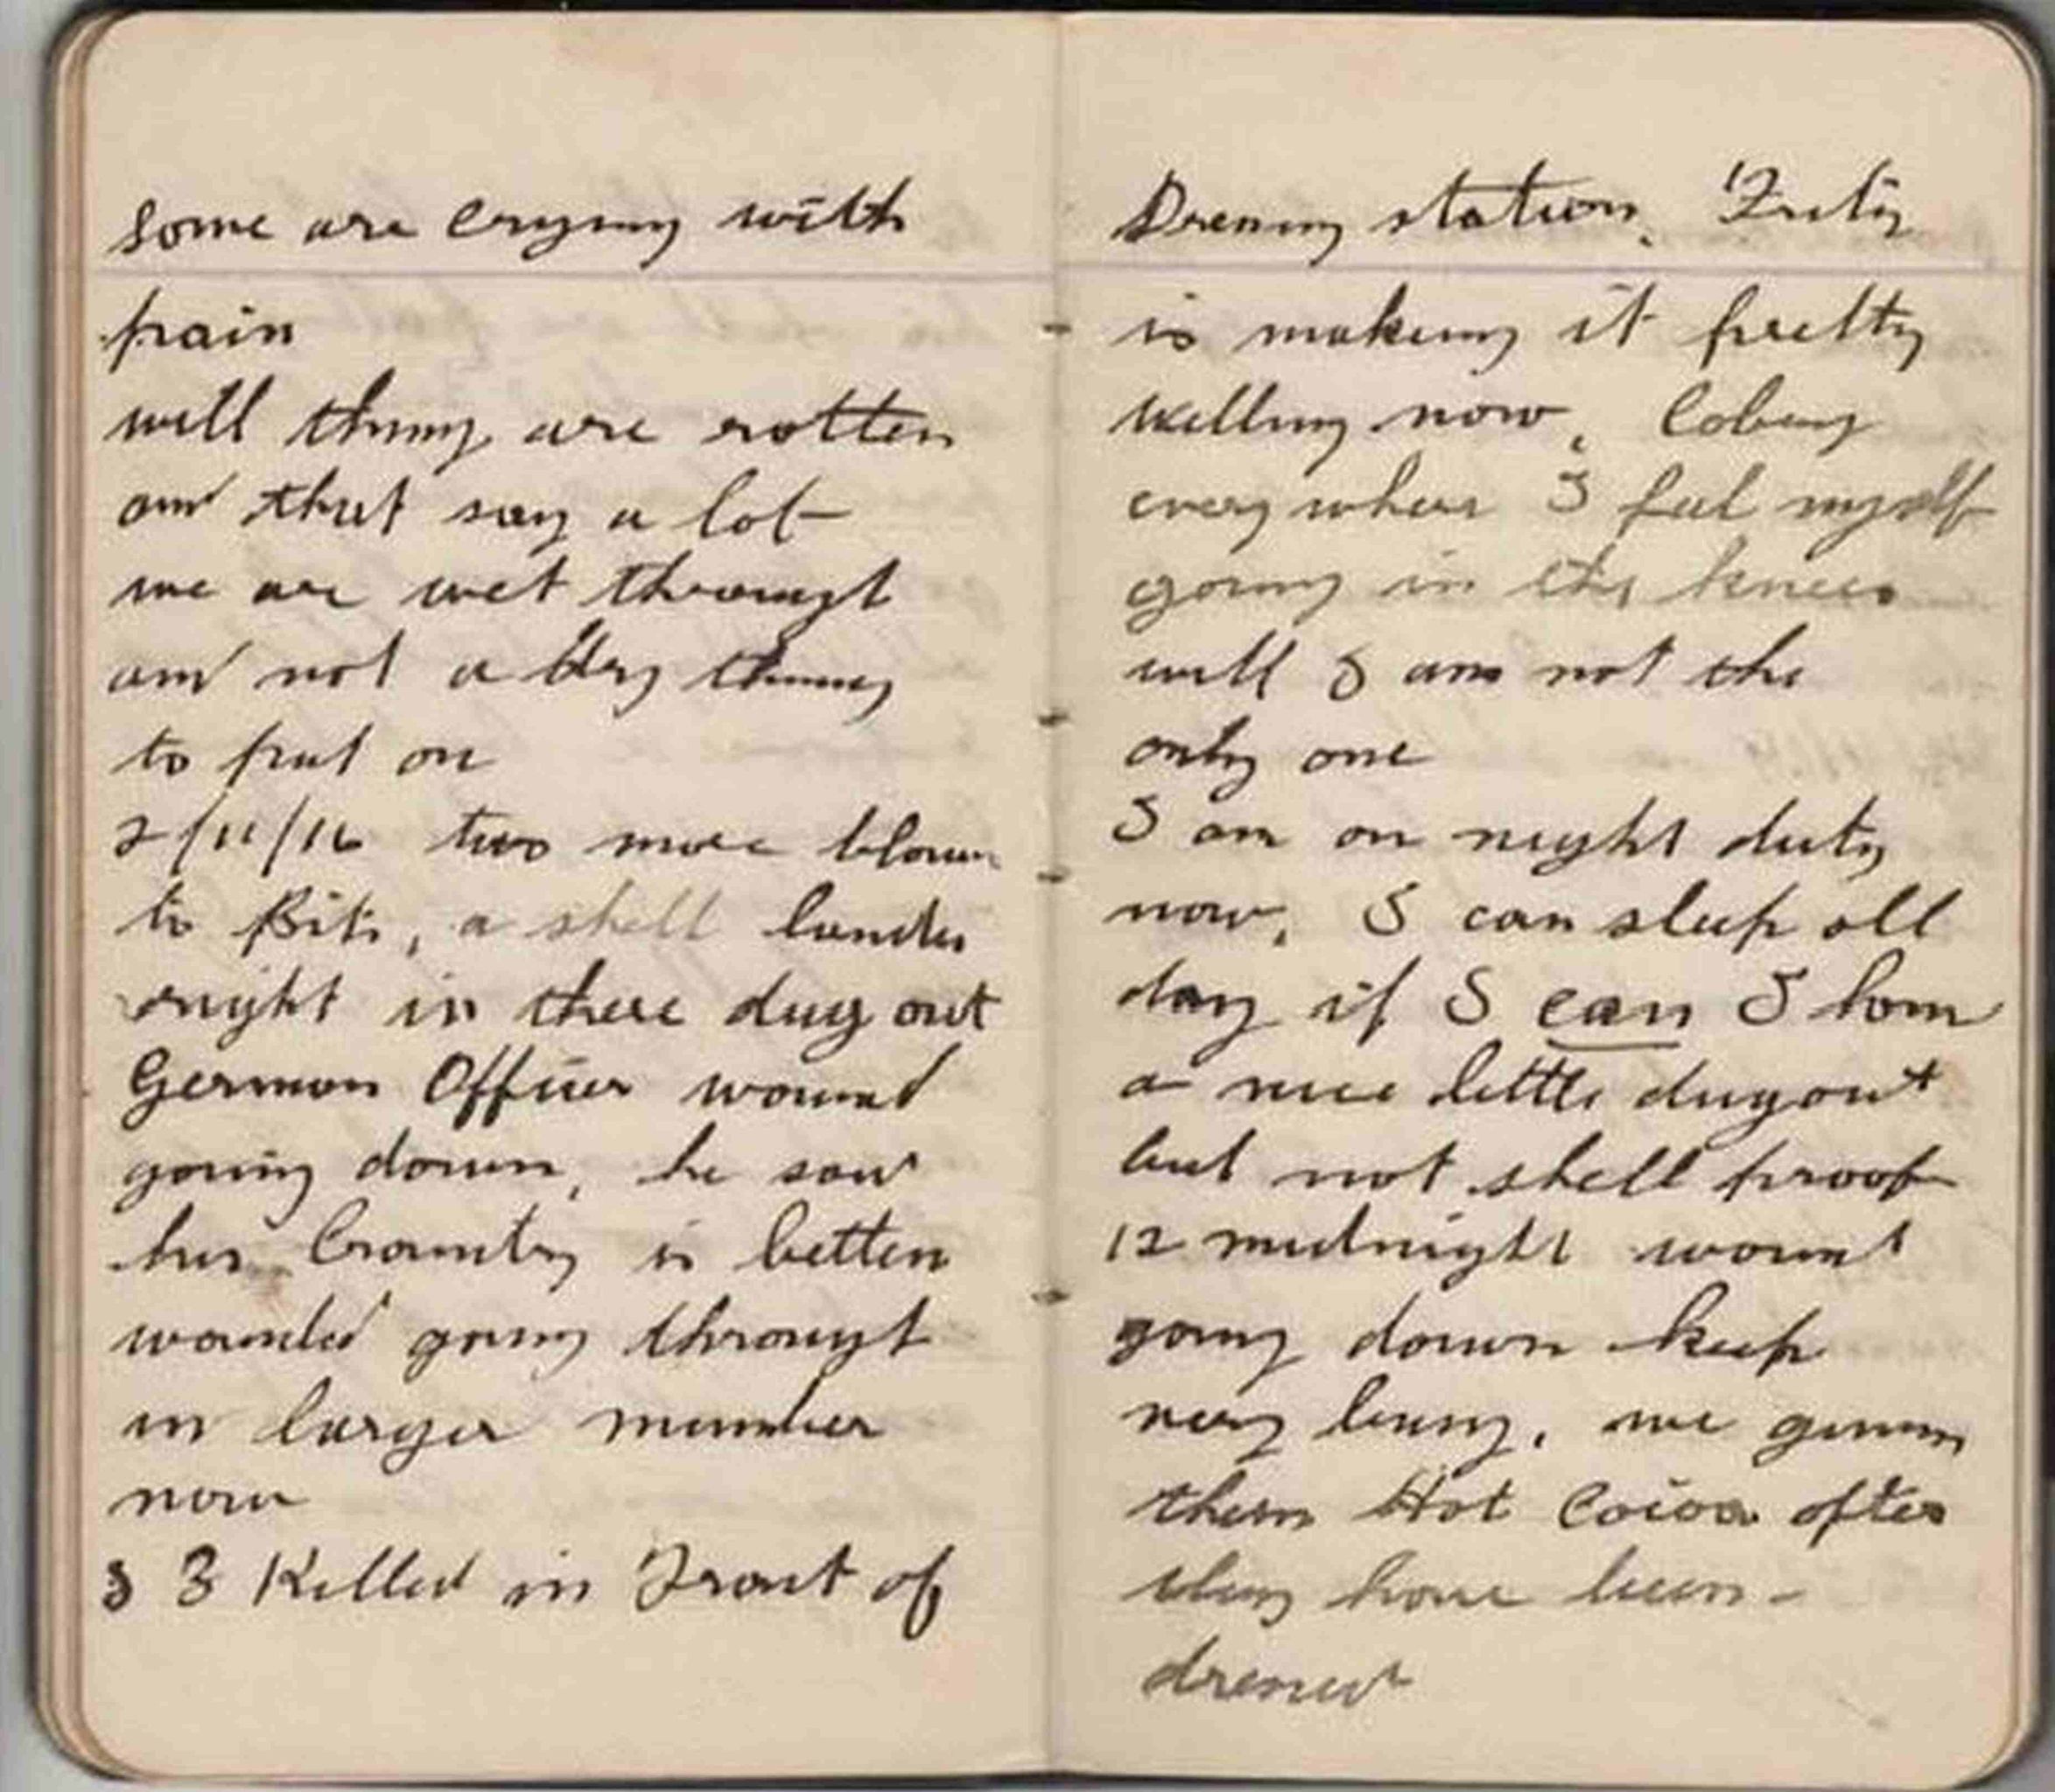 some are crying with
pain
well thing are rotten
and that say a lot
we are wet throught
and not a dry thing
to put on
2/11/16 two more blown
to Bits, a shell landed
right in there dug out
German Officer wound
going down, he said
his Country is betten
wounded going throught
in larger number
now
3 Killed in Front of
Dressing station. Fritz
is making it pretty
willing now,
everywhere I feel myself
going in the knees
well I am not the
only one
I am on night duty
now, I can sleep all
day if I can I have
a nice little dugout
but not shell proof
12 midnight wound
going down keep
very busy, we given
them Hot Cocoa after
they have been -
dressed